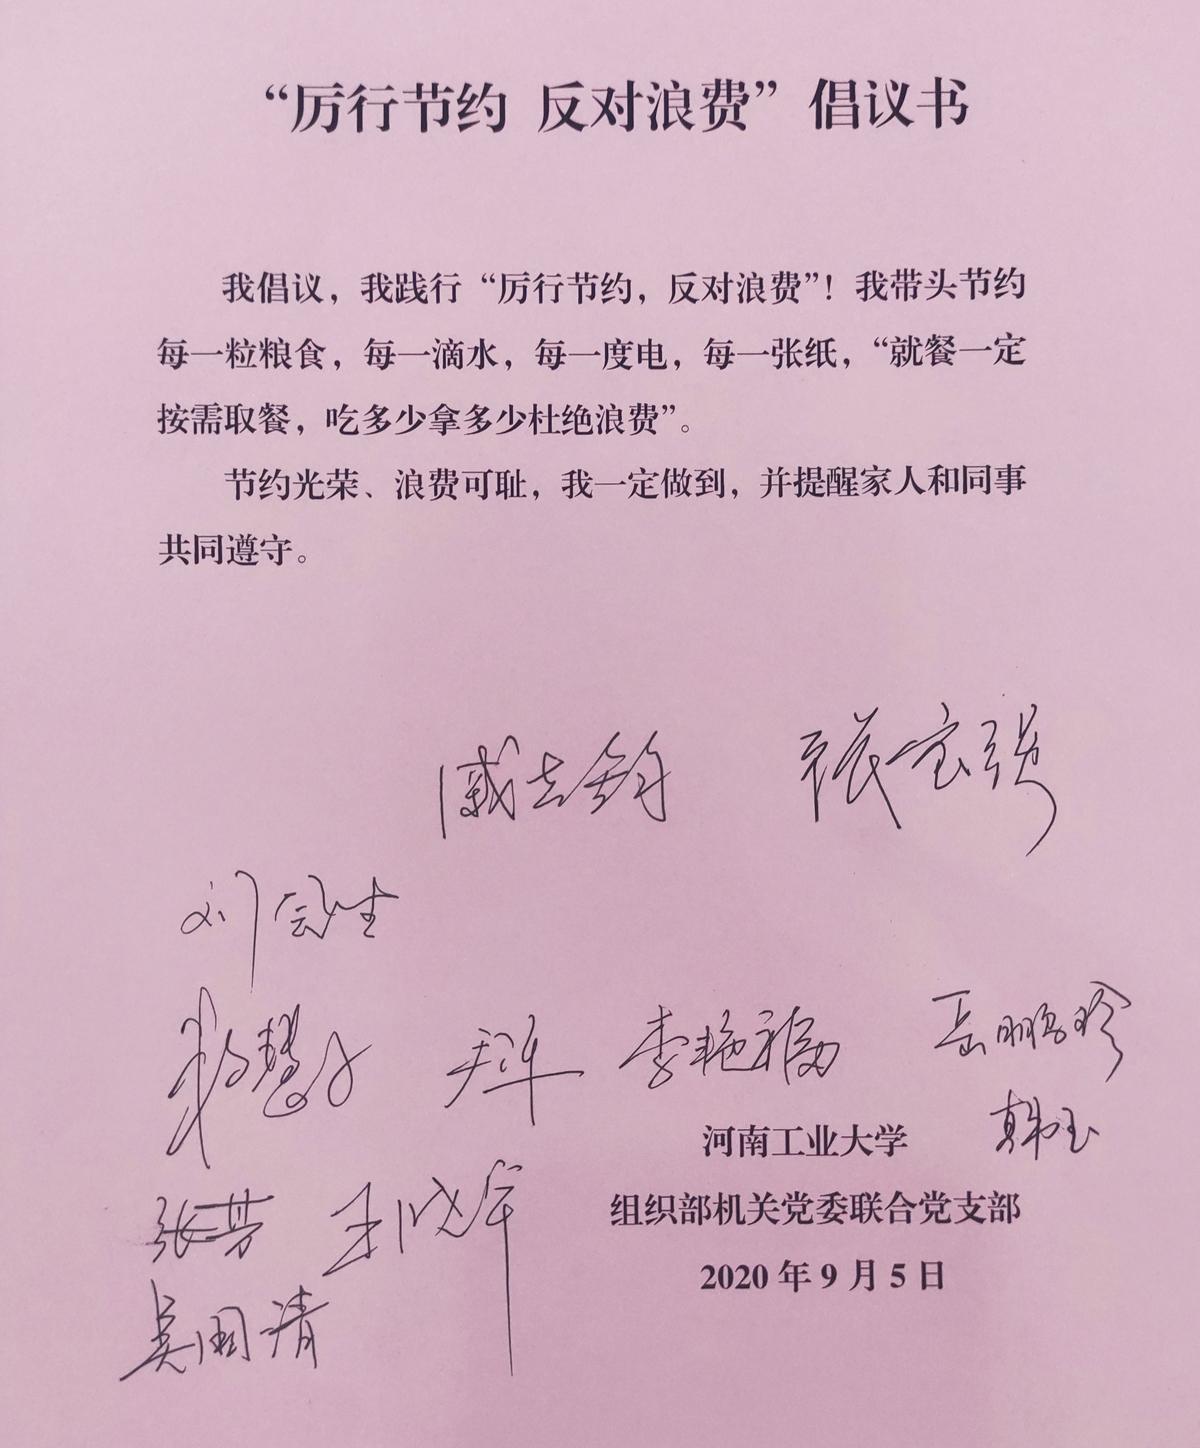 “厉行节约 反对浪费”倡议书
我倡议，我践行“厉行节约，反对浪费”！我带头节约
每一粒粮食，每一滴水，每一度电，每一张纸，“就餐一定
按需取餐，吃多少拿多少杜绝浪费”。
节约光荣、浪费可耻，我一定做到，并提醒家人和同事
共同遵守。
戚志钧 张宏强
刘会生
李艳福 岳鹏珍
河南工业大学 韩玉
张芬 王晓军 组织部机关党委联合党支部
2020年9月5日
吴国清